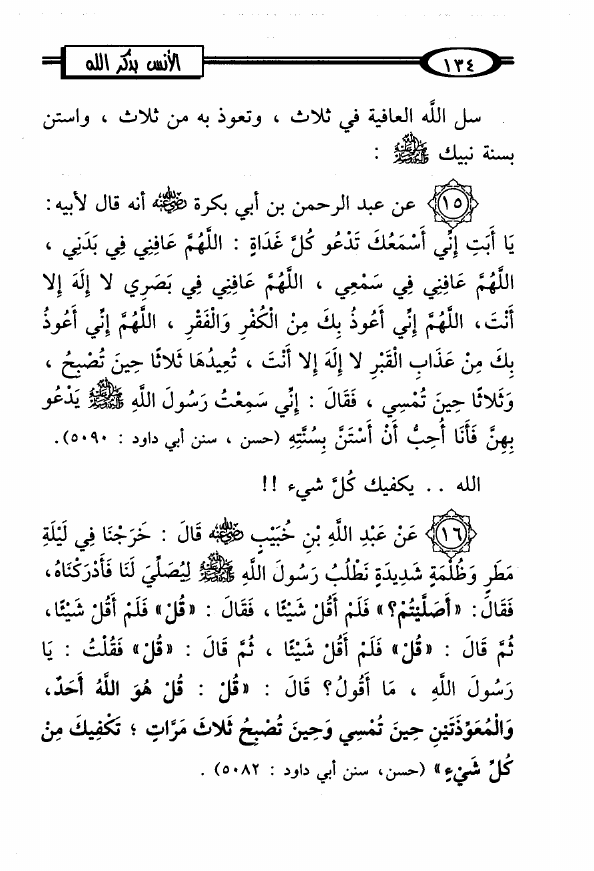 ١٣٤
الأنس بذكر الله
سل الله العافية في ثلاث ، وتعوذ به من ثلاث ، واستن
بسنة نبيك ﷺ :
١٥ عن عبد الرحمن بن أبي بكرة رضي الله عنه أنه قال لأبيه:
يَا أَبَتِ إِنِّي أَسْمَعُكَ تَدْعُو كُلَّ غَدَاةٍ : اللَّهُمَّ عَافِنِي فِي بَدَنِي ،
اللَّهُمَّ عَافِنِي فِي سَمْعِي ، اللَّهُمَّ عَافِنِي فِي بَصَرِي لا إِلَهَ إِلا
أَنْتَ، اللَّهُمَّ إِنِّي أَعُوذُ بِكَ مِنْ الْكُفْرِ وَالْفَقْرِ ، اللَّهُمَّ إِنِّي أَعُوذُ
بِكَ مِنْ عَذَابِ الْقَبْرِ لا إِلَهَ إِلا أَنْتَ ، تُعِيدُهَا ثَلاثًا حِينَ تُصْبِحُ ،
وَثَلاثًا حِينَ تُمْسِي ، فَقَالَ : إِنِّي سَمِعْتُ رَسُولَ اللَّهِ ﷺ يَدْعُو
بِهِنَّ فَأَنَا أُحِبُّ أَنْ أَسْتَنَّ بِسُنَّتِهِ (حسن ، سنن أبي داود : ٥٠٩٠).
الله .. يكفيك كُلَّ شيء !!
١٦ عَنْ عَبْدِ اللَّهِ بْنِ خُبَيْبٍ رضي الله عنه قَالَ : خَرَجْنَا فِي لَيْلَةِ
مَطَرٍ وَظُلْمَةٍ شَدِيدَةٍ نَطْلُبُ رَسُولَ اللَّهِ ﷺ لِيُصَلِّيَ لَنَا فَأَدْرَكْنَاهُ،
فَقَالَ: «أَصَلَّيْتُمْ؟» فَلَمْ أَقُلْ شَيْئًا ، فَقَالَ : «قُلْ» فَلَمْ أَقُلْ شَيْئًا،
ثُمَّ قَالَ : «قُلْ» فَلَمْ أَقُلْ شَيْئًا ، ثُمَّ قَالَ : «قُلْ» فَقُلْتُ : يَا
رَسُولَ اللَّهِ ، مَا أَقُولُ؟ قَالَ : «قُلْ : قُلْ هُوَ اللَّهُ أَحَدٌ،
وَالْمُعَوِّذَتَيْنِ حِينَ تُمْسِي وَحِينَ تُصْبِحُ ثَلاثَ مَرَّاتٍ ؛ تَكْفِيكَ مِنْ
كُلِّ شَيْءٍ» (حسن، سنن أبي داود : ٥٠٨٢) .